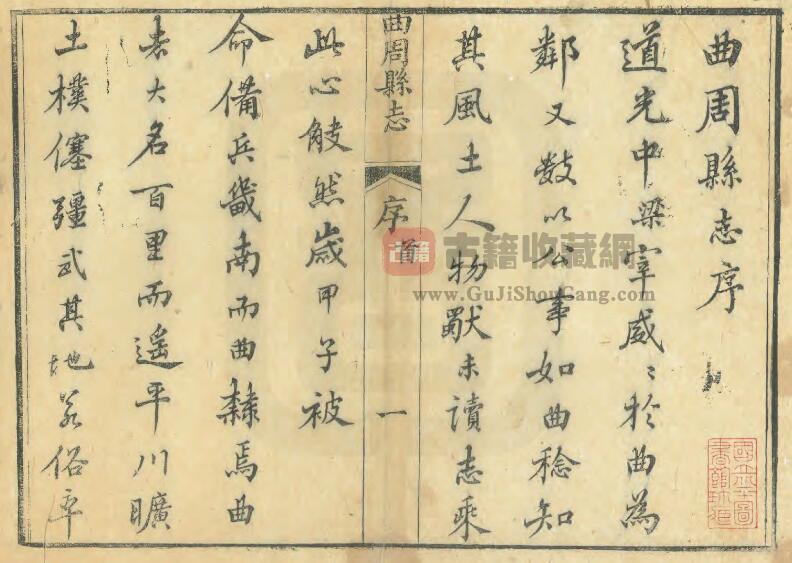 曲周縣志序
道光中梁宰威〻於曲為
鄰又數以公事如曲稔知
其風土人物未讀志乘
曲周縣志
序首
一
此心觖然歲甲子被
命備兵畿南而曲隸焉曲
去大名百里而遙平川曠
土樸僿彊武其地若俗率
古籍
古籍收藏網
www.GuJiShouCang.com